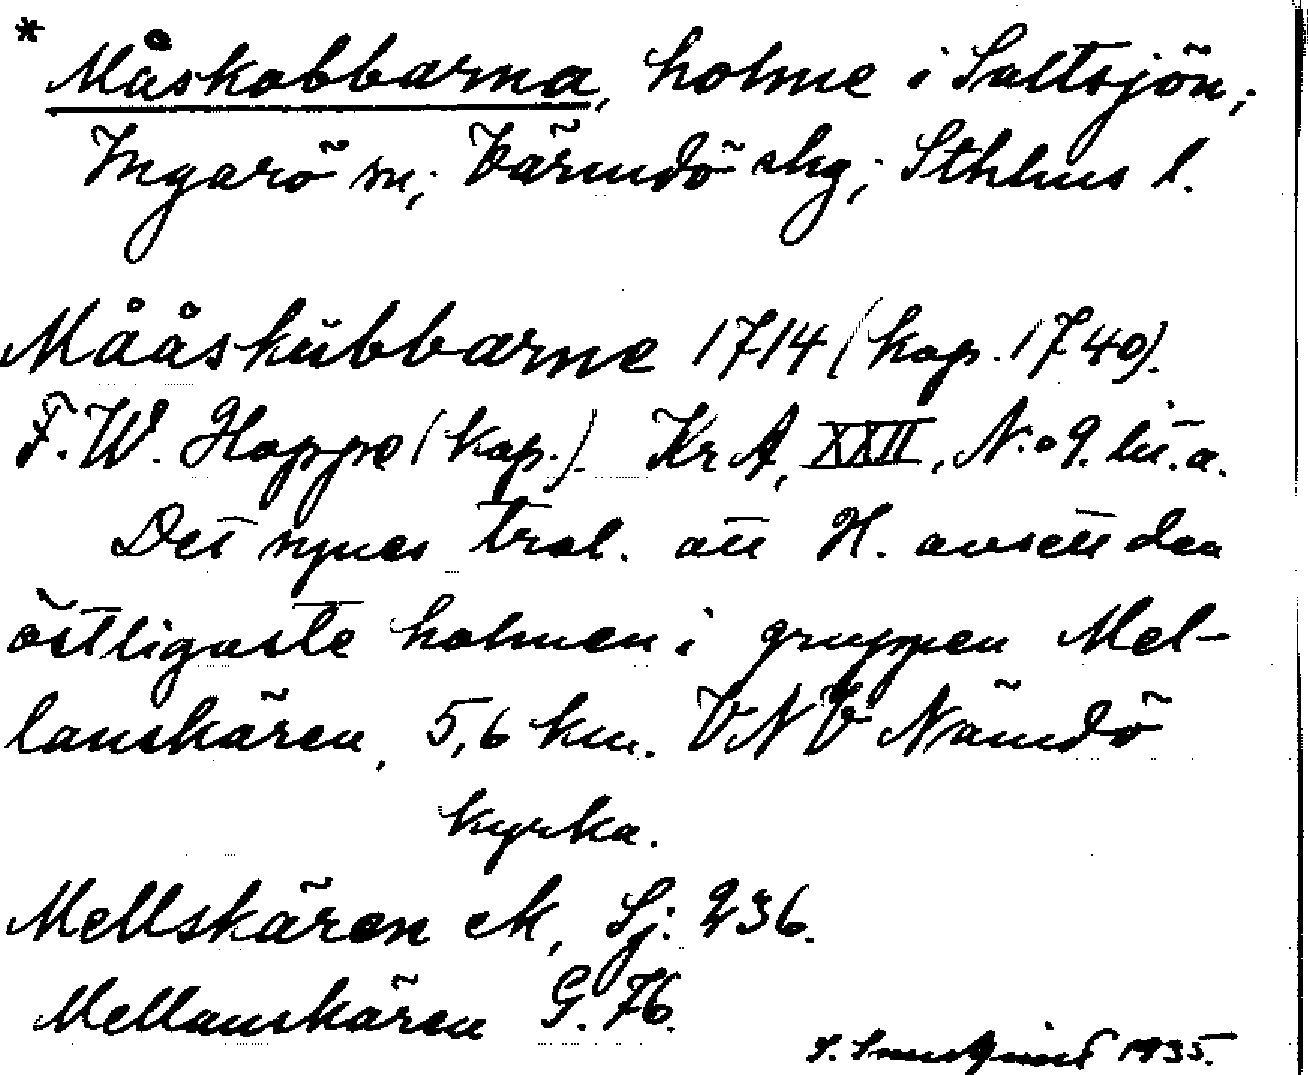 * Måskobbarna, holme i Saltsjön;
Ingarö sn; Värmdö skg; Sthlms l.
Mååskubbarne 1714 (kop. 1740).
F. W. Hoppe (kop.). Kr A, XXII, N:o 9. litt. a.
Det synes trol. att H. avsett den
östligaste holmen i gruppen Mel-
lanskären, 5,6 km. VNV Nämdö
kyrka.
Mellskären eK, Sj: 236.
Mellanskären G. 76.
1935.